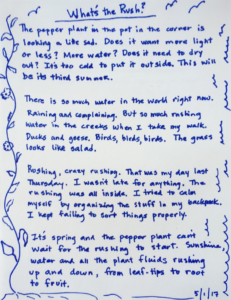 What's the Rush?
The pepper plant in the pot in the corner is
looking a little sad. Does it want more light
or less? More water? Does it need to dry
out? It's too cold to put it outside. This will
be its third summer.
There is so much water in the world right now.
Raining and complaining. But so much rushing
water in the creeks when I take my walk.
Ducks and geese, Birds, birds, birds. The grass
looks like salad.
Rushing, crazy rushing. That was my day last
Thursday. I wasn't late for anything. The
rushing was all inside. I tried to calm
myself by organizing the stuff in my backpack.
I kept failing to sort things properly.
It's spring and the pepper plant can't
wait for the rushing to start. Sunshine,
water and all the plant fluids rushing
up and down, from leaf-tips to root
to fruit.
5/1/17